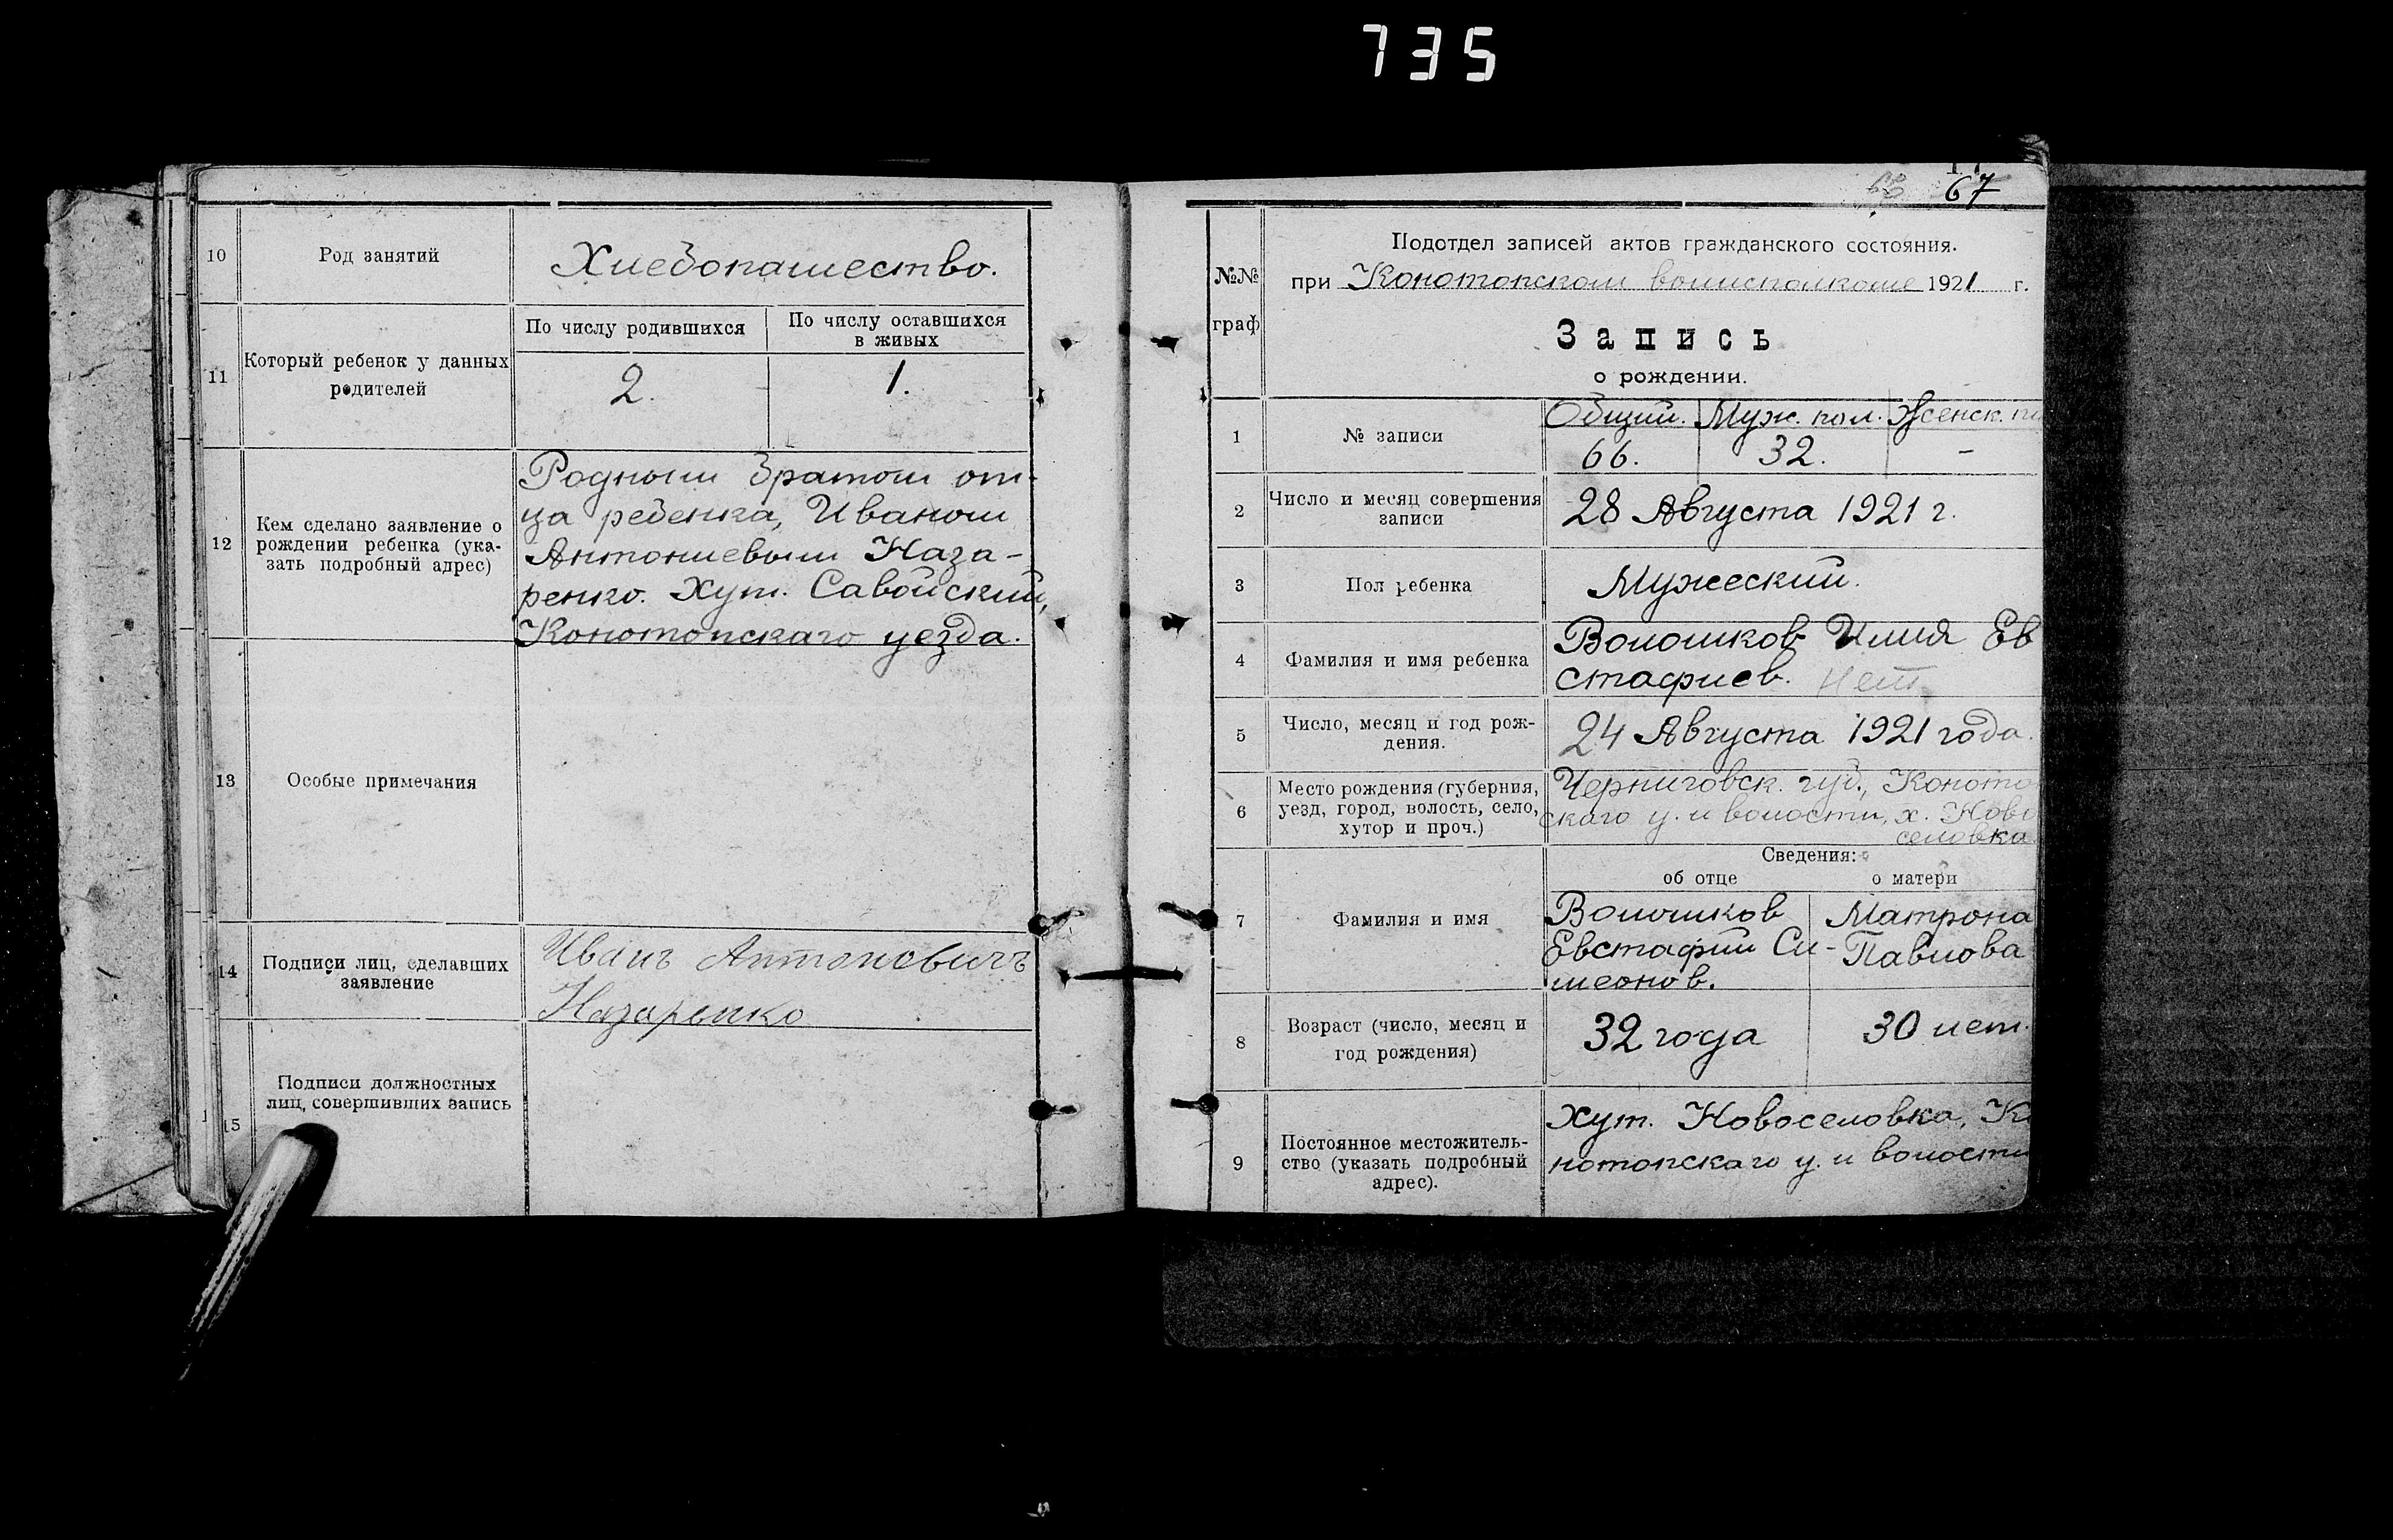 735
67
10
Род занятий
Хлебопашество.
11
Который ребенок у данных
родителей
По числу родившихся
По числу оставшихся
в живых
2.
1.
12
Кем сделано заявление о
рождении ребенка (ука-
зать подробный адрес)
Родным братом от-
ца ребенка, Иваном
Антониевым Наза-
ренко. Хут. Савойский,
Конотопскаго уезда.
13
Особые примечания
14
Подписи лиц, сделавших
заявление
Иванъ Антоновичъ
Назаренко
15
Подписи должностных
лиц, совершивших запись
№№
граф
Подотдел записей актов гражданского состояния.
при Конотопском волисполкоме 1921 г.
Запись
о рождении.
1
№ записи
Общий. Муж. пол. Женск. по
66. 32. -
2
Число и месяц совершения
записи
28 Августа 1921 г.
3
Пол ребенка
Мужеский.
4
Фамилия и имя ребенка
Волошков Илия Ев
стафиев. нет
5
Число, месяц и год рож-
дения.
24 Августа 1921 года.
6
Место рождения (губерния,
уезд, город, волость, село,
хутор и проч.)
Черниговск. губ., Коното
скаго у. и волости, х. Ново
селовка
Сведения:
об отце
о матери
7
Фамилия и имя
Волошков
Евстафий Си-
меонов.
Матрона
Павлова
8
Возраст (число, месяц и
год рождения)
32 года
30 лет.
9
Постоянное местожитель-
ство (указать подробный
адрес).
Хут. Новоселовка, Ко
нотопскаго у. и волости